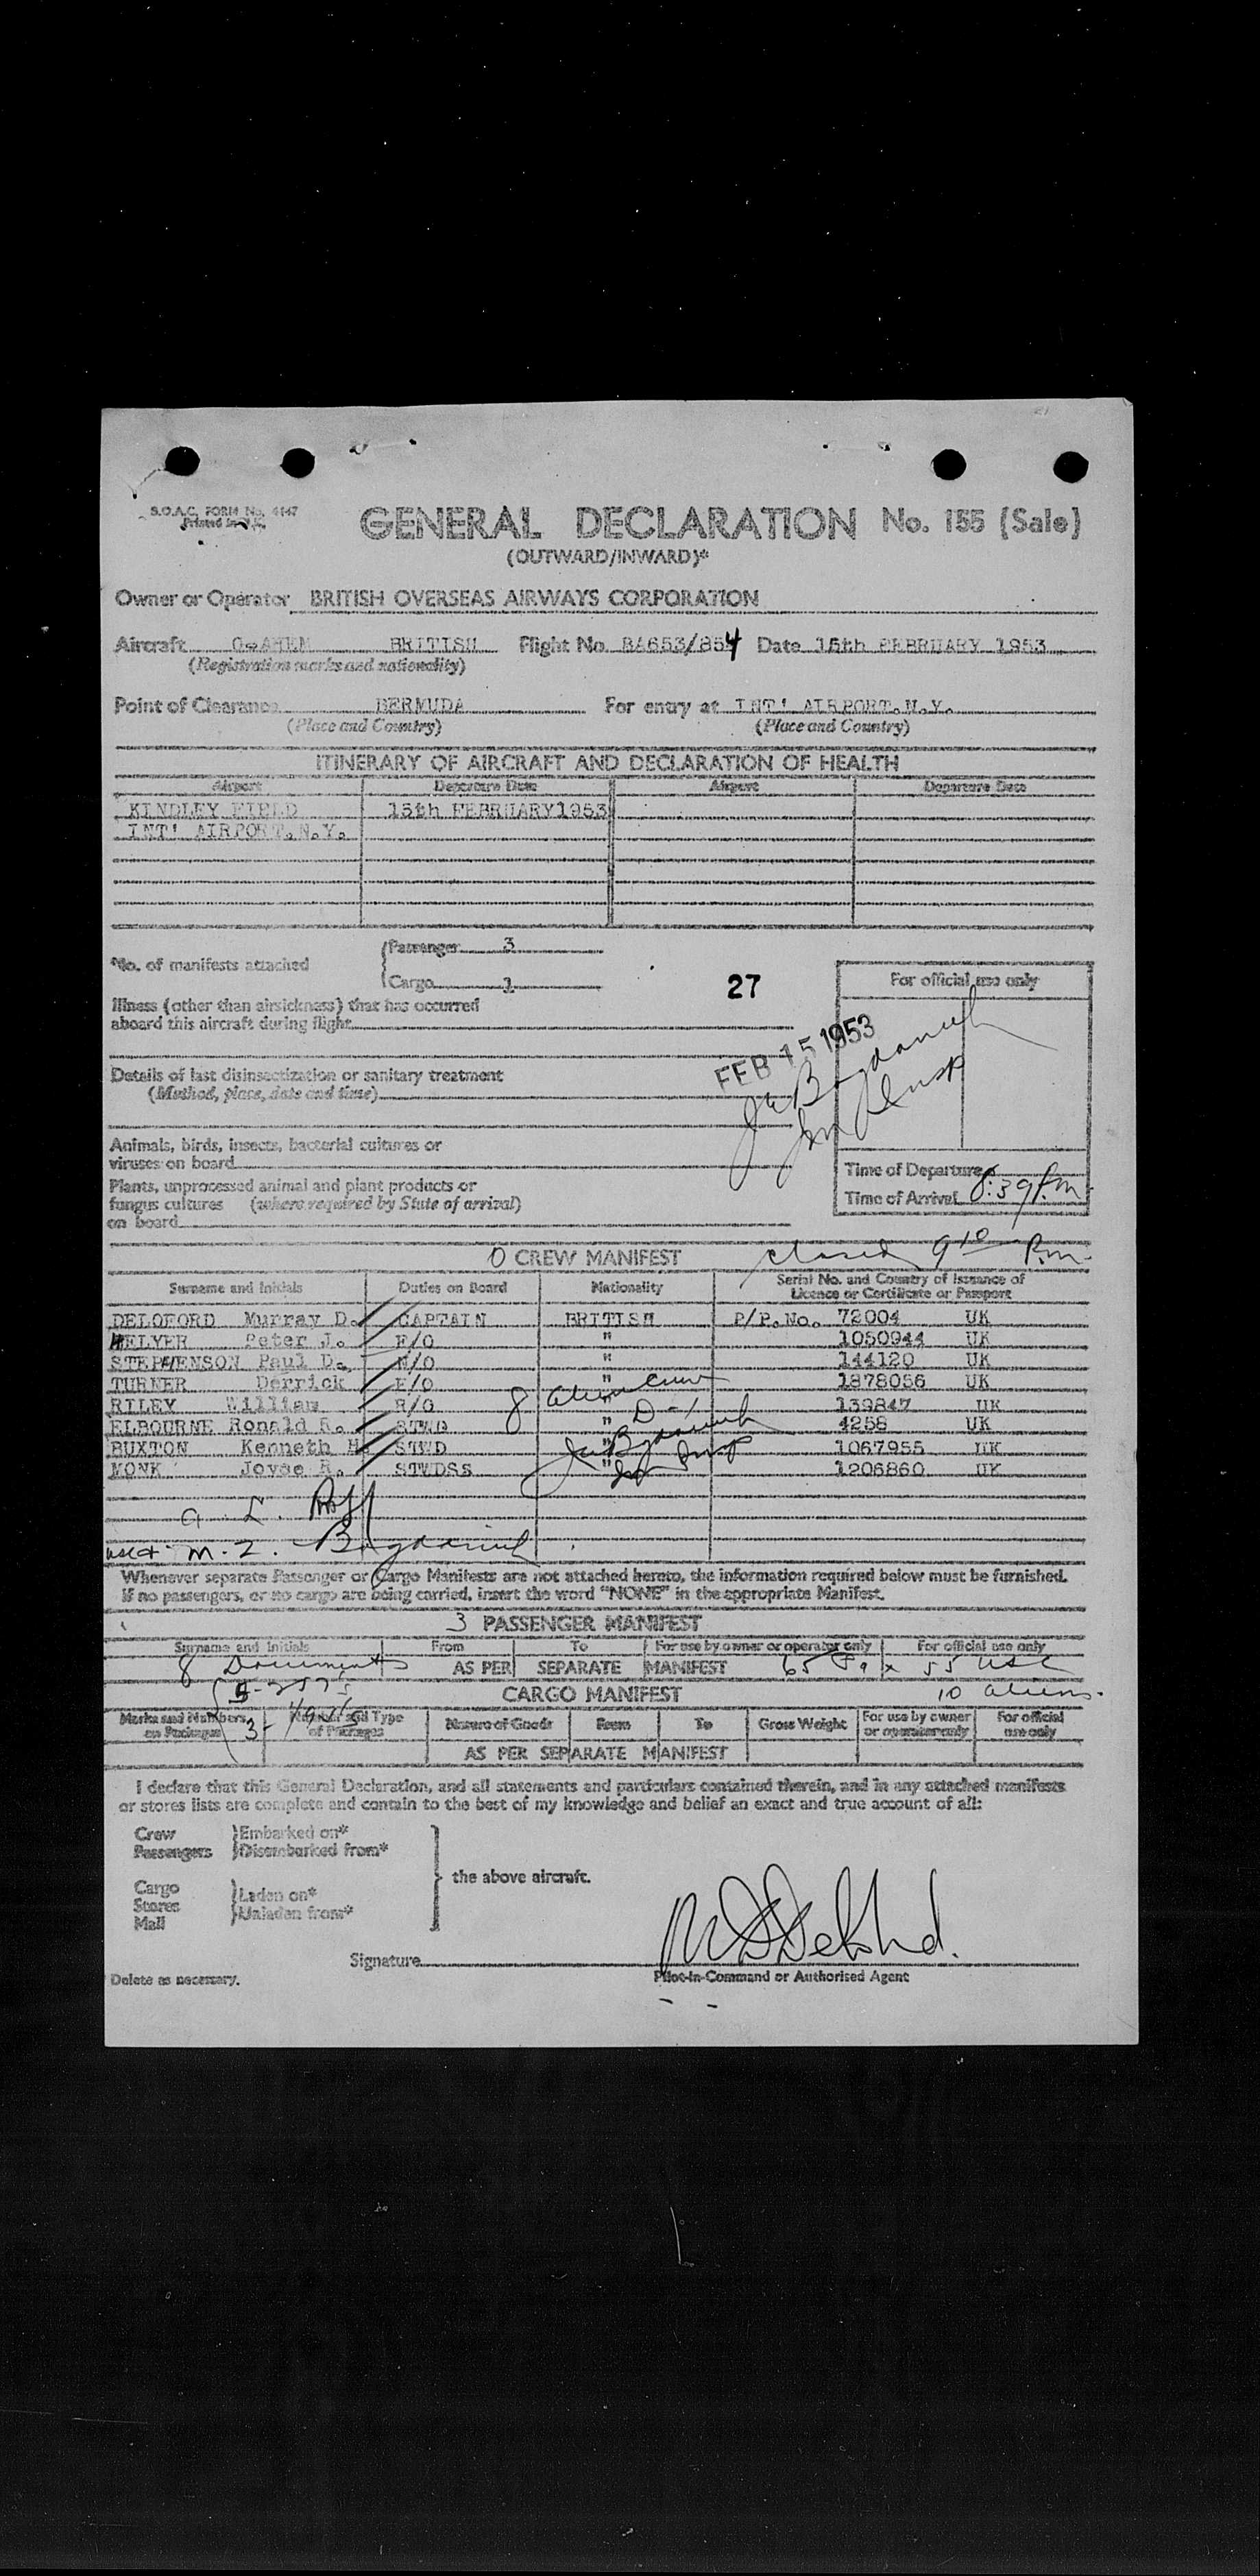 B.O.A.C. FORM No. 4147
Printed in U.K.
GENERAL DECLARATION No. 155 (Sale)
(OUTWARD/INWARD)*
Owner or Operator BRITISH OVERSEAS AIRWAYS CORPORATION
Aircraft G-AHEN BRITISH Flight No. BA653/854 Date 15th FEBRUARY 1953
(Registration marks and nationality)
Point of Clearance BERMUDA For entry at INT' AIRPORT.N.Y.
(Place and Country) (Place and Country)
ITINERARY OF AIRCRAFT AND DECLARATION OF HEALTH
Airport Departure Date Airport Departure Date
KINDLEY FIELD 15th FEBRUARY1953
INT' AIRPORT.N.Y.
No. of manifests attached
Passenger 3
Cargo 1
27
For official use only
Illness (other than airsickness) that has occurred
aboard this aircraft during flight
FEB 15 1953
Details of last disinsectization or sanitary treatment
(Method, place, date and time)
Animals, birds, insects, bacterial cultures or
viruses on board
Plants, unprocessed animal and plant products or
fungus cultures (where required by State of arrival)
on board
Time of Departure
Time of Arrival 8:39 P.m.
closed 9 10 P.m.
0 CREW MANIFEST
Surname and Initials Duties on Board Nationality Serial No. and Country of Issuance of
Licence or Certificate or Passport
DELOFORD Murray D. CAPTAIN BRITISH P/P.No. 72004 UK
HELYER Peter J. F/O " 1050944 UK
STEPHENSON Paul D. N/O " 144120 UK
TURNER Derrick E/O " 1878056 UK
RILEY William R/O " 139847 UK
ELBOURNE Ronald R. STWD " 4258 UK
BUXTON Kenneth H. STWD " 1067955 UK
MONK Joyce R. STWDSS " 1206860 UK
8 alien crew
D-1
a. L. Roff
M. Z. Bogdanich
Whenever separate Passenger or Cargo Manifests are not attached hereto, the information required below must be furnished.
If no passengers, or no cargo are being carried, insert the word "NONE" in the appropriate Manifest.
3 PASSENGER MANIFEST
Surname and Initials From To For use by owner or operator only For official use only
8 Documents AS PER SEPARATE MANIFEST 65 55 usc
10 aliens.
CARGO MANIFEST
Marks and Numbers on Packages Number and Type of Packages Nature of Goods From To Gross Weight For use by owner or operator only For official use only
AS PER SEPARATE MANIFEST
I declare that this General Declaration, and all statements and particulars contained therein, and in any attached manifests
or stores lists are complete and contain to the best of my knowledge and belief an exact and true account of all:
Crew Embarked on*
Passengers Disembarked from*
the above aircraft.
Cargo Laden on*
Stores
Mail Unladen from*
Signature
Delete as necessary. Pilot-in-Command or Authorised Agent